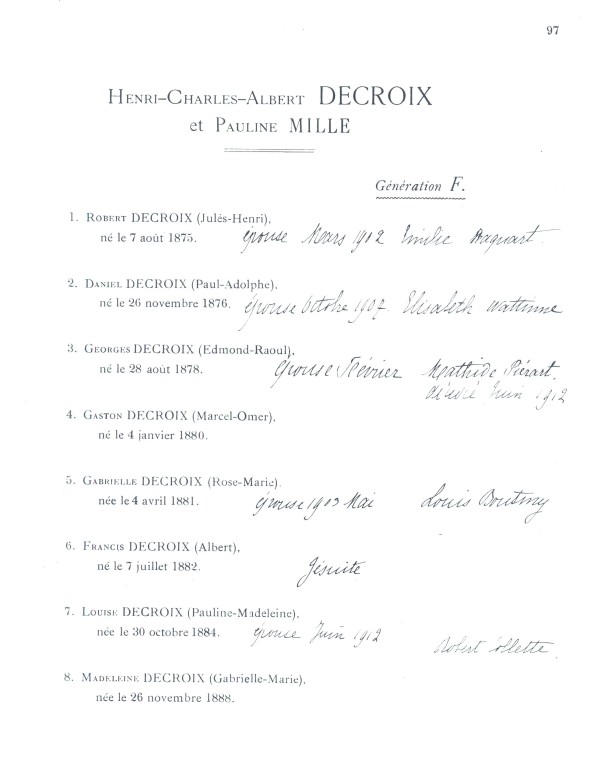 97
HENRI-CHARLES-ALBERT DECROIX
et PAULINE MILLE
Génération F.
1. ROBERT DECROIX (Jules-Henri),
né le 7 août 1875. épouse Mars 1902 Emilie
2. DANIEL DECROIX (Paul-Adolphe),
né le 26 novembre 1876. épouse Octobre 1907 Elisabeth Wattinne
3. GEORGES DECROIX (Edmond-Raoul),
né le 28 août 1878. épouse Février Mathilde Piérart
Juin 1912
4. GASTON DECROIX (Marcel-Omer),
né le 4 janvier 1880.
5. GABRIELLE DECROIX (Rose-Marie).
née le 4 avril 1881. épouse 1903 Mai Louis Boutmy
6. FRANCIS DECROIX (Albert),
né le 7 juillet 1882. Jésuite
7. LOUISE DECROIX (Pauline-Madeleine),
née le 30 octobre 1884. épouse Juin 1912
Robert Collette
8. MADELEINE DECROIX (Gabrielle-Marie),
née le 26 novembre 1888.